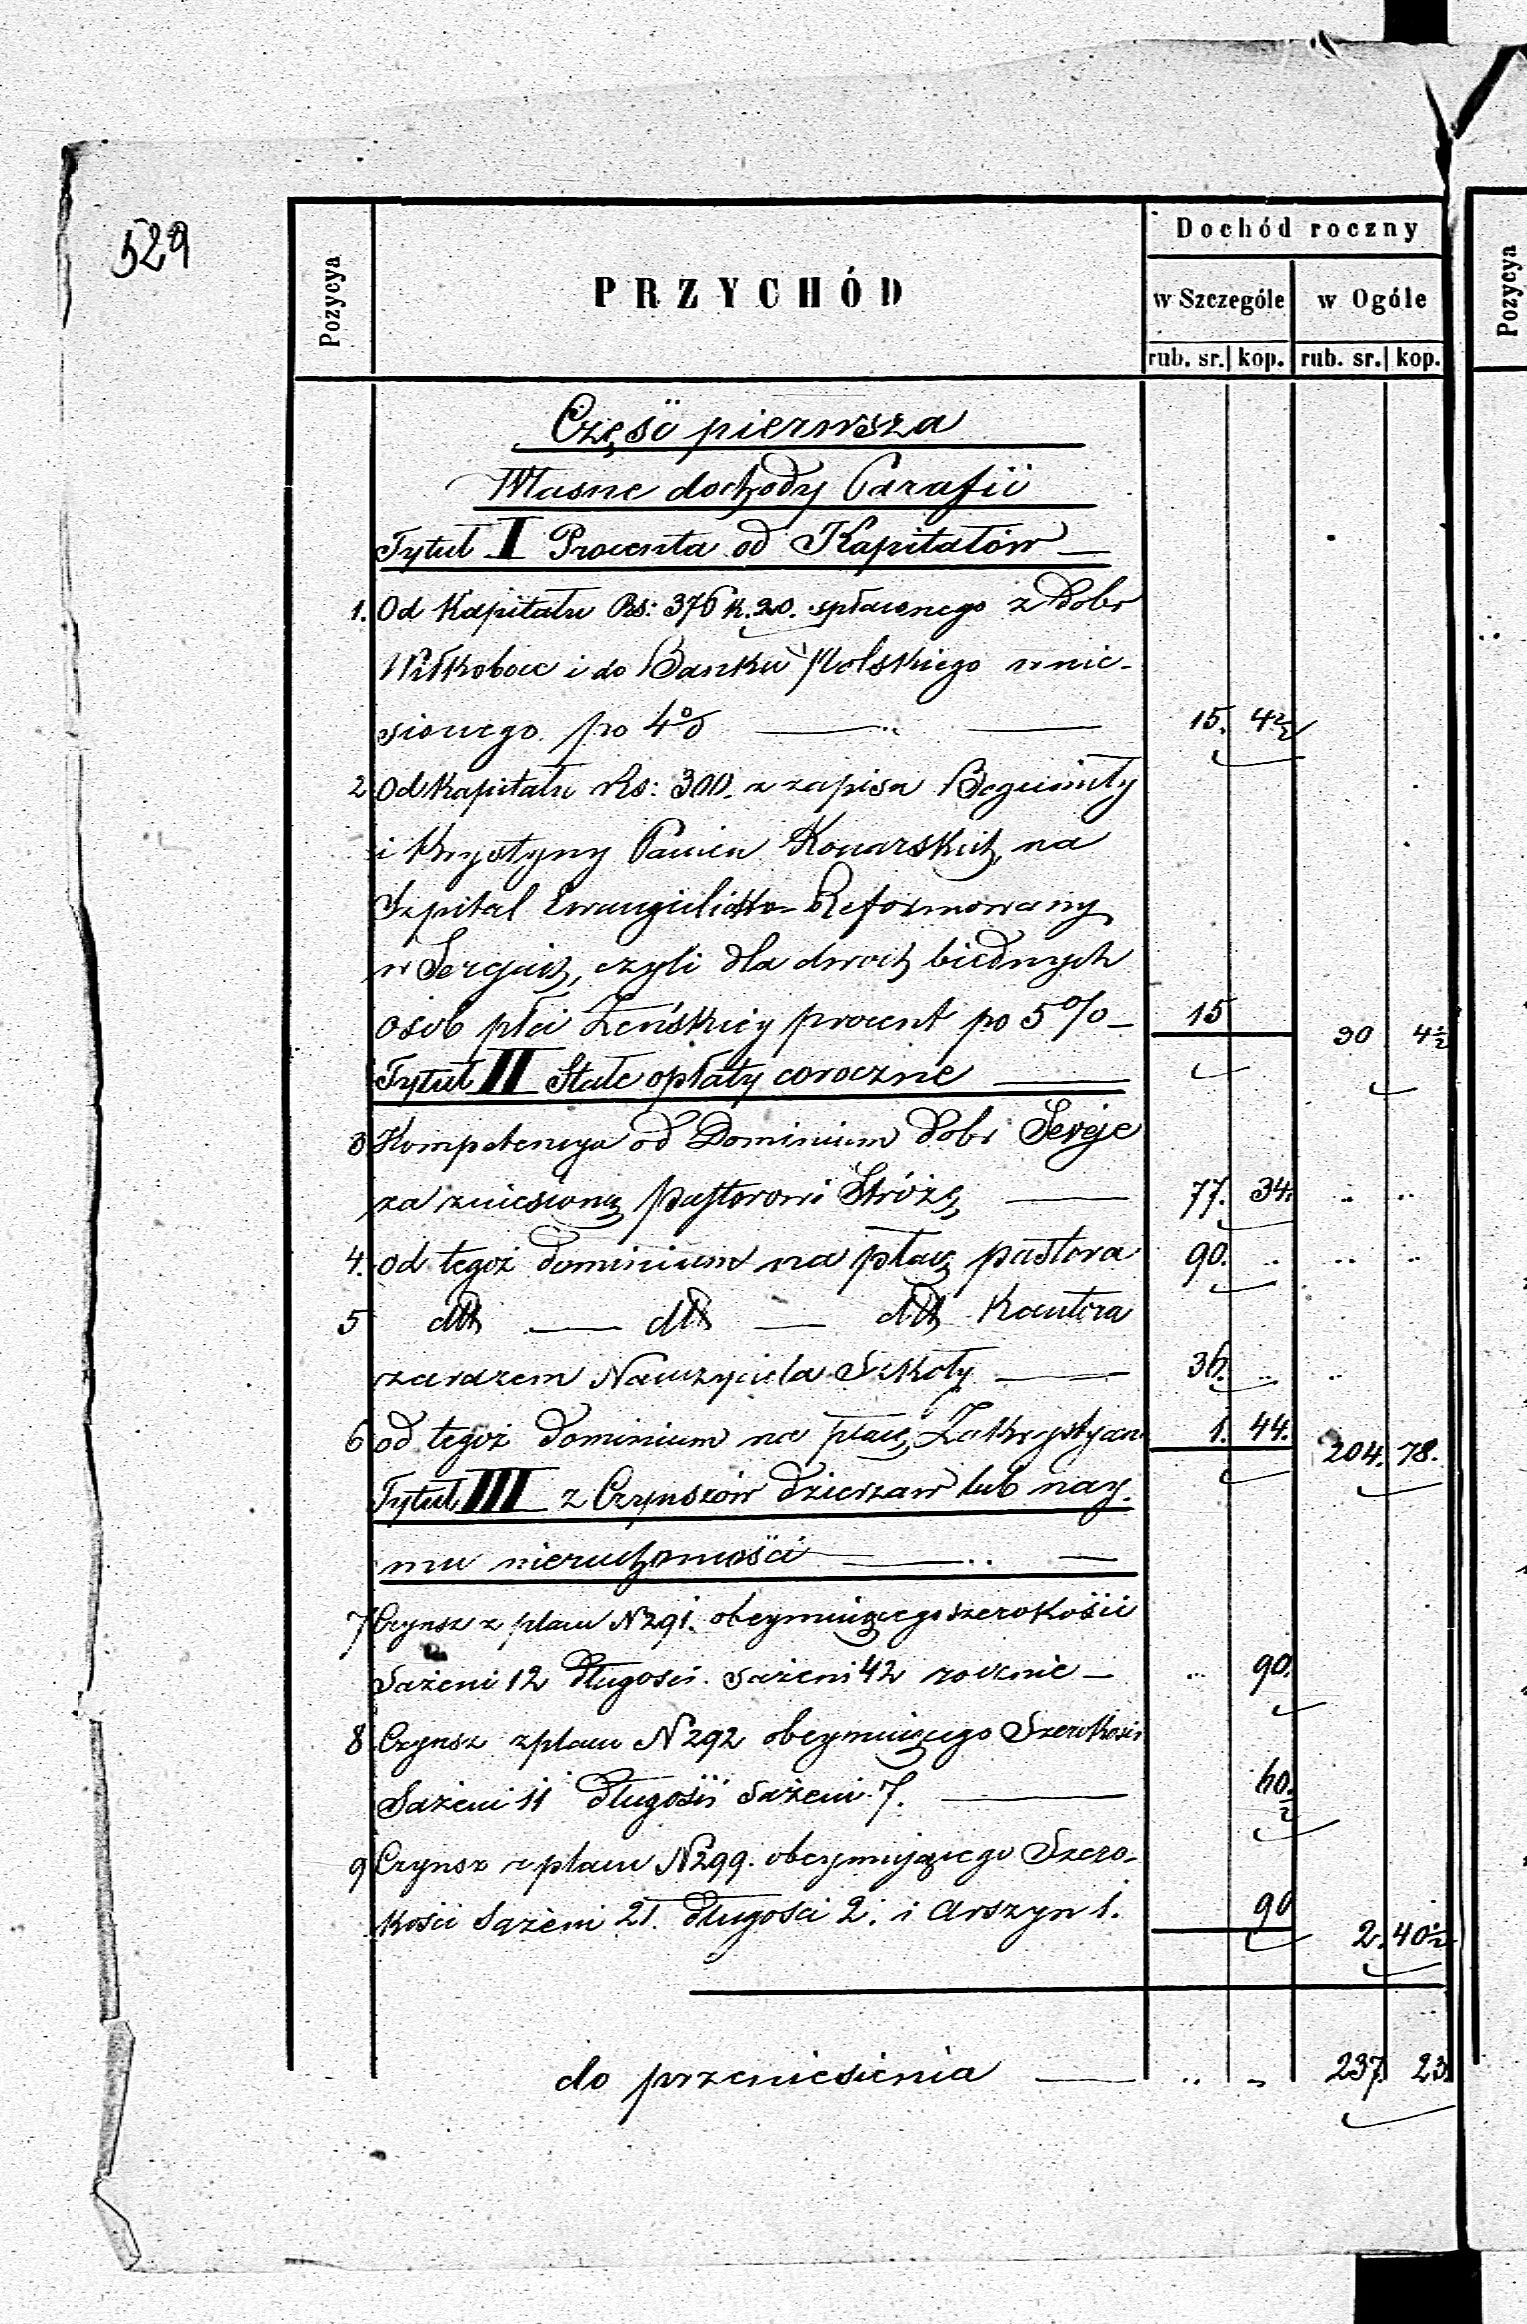 529
Pozycya
PRZYCHÓD
Dochód roczny
w Szczególe
w Ogóle
rub. sr. kop. rub. sr. kop.
Pozycya
Część pierwsza
Własne dochody Parafii
Tytuł I Procenta od Kapitałów
1. Od Kapitału Rs: 376 k. 20. spłaconego z Dobr
Wiłkobole i do Banku Polskiego wnie-
sionego po 4% 15. 4½
2 Od Kapitału Rs: 300. z zapisu Bogumiły
i Krystyny Panien Konarskich, na
Szpital Ewangielicko-Reformowany
w Serejach, czyli dla dwóch biednych
osób płci Żeńskiey procent po 5% 15 30 4½
Tytuł II Stałe opłaty coroczne
3 Kompetencya od Dominium Dobr Sereje
za zniesioną pastorowi Stróżę 77. 34.
4. od tegoż Dominium na płacę pastora 90.
5 dtt dtt dtt Kantora
zarazem Nauczyciela Szkoły 36.
6 od tegoż Dominium na płacę Zakrystyan 1. 44. 204. 78.
Tytuł III z Czynszów Dzierzaw lub nay-
mu nieruchomości
7 Czynsz z placu N 291. obeymuiącego szerokości
Sażeni 12 Długości Sażeni 42 rocznie 90.
8 Czynsz z placu N 292 obeymuiącego Szerokości
Sażeni 11 Długości Sażeni 7. 60.½
9 Czynsz z placu N 299. obeymującego Szero-
kości Sążeni 21. Długości 2. i Arszyn 1. 90 2. 40½
do przeniesienia 237. 23.